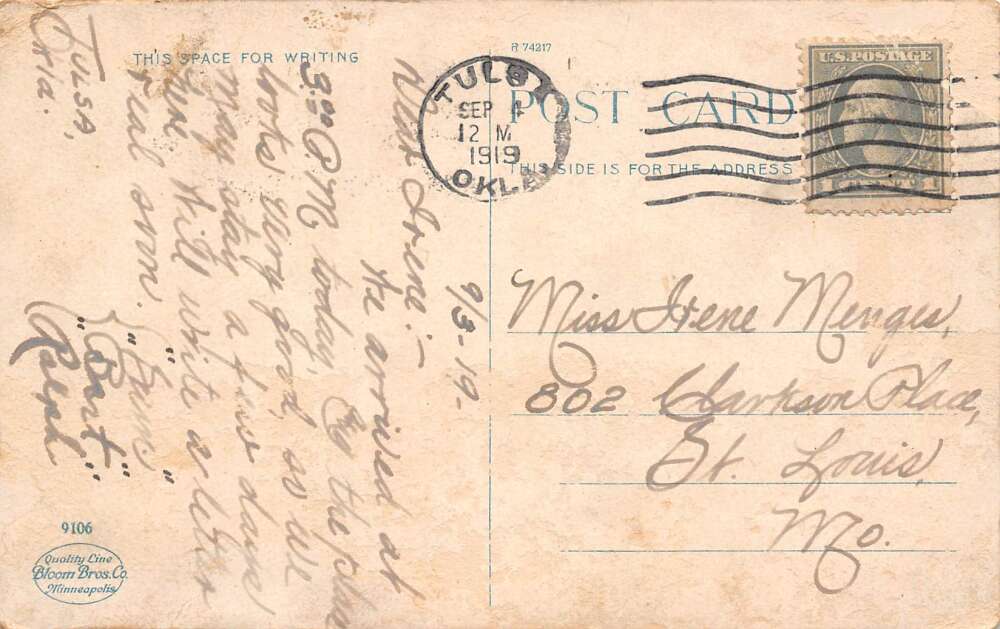 THIS SPACE FOR WRITING
R 74217
POST CARD
THIS SIDE IS FOR THE ADDRESS
TULSA
SEP 4
12 M
1919
OKLA.
U.S. POSTAGE
1 CENT 1
Tulsa,
Okla.
9/3-19-
Dear Irene:-
We arrived at
3:00 P.M. today. By the
looks very good, so we
may stay a few days
Will write a letter
real soon.
"Bart"
Ralph
Miss Irene Menges,
802 Clarkson Place,
St. Louis,
Mo.
9106
Quality Line
Bloom Bros. Co.
Minneapolis